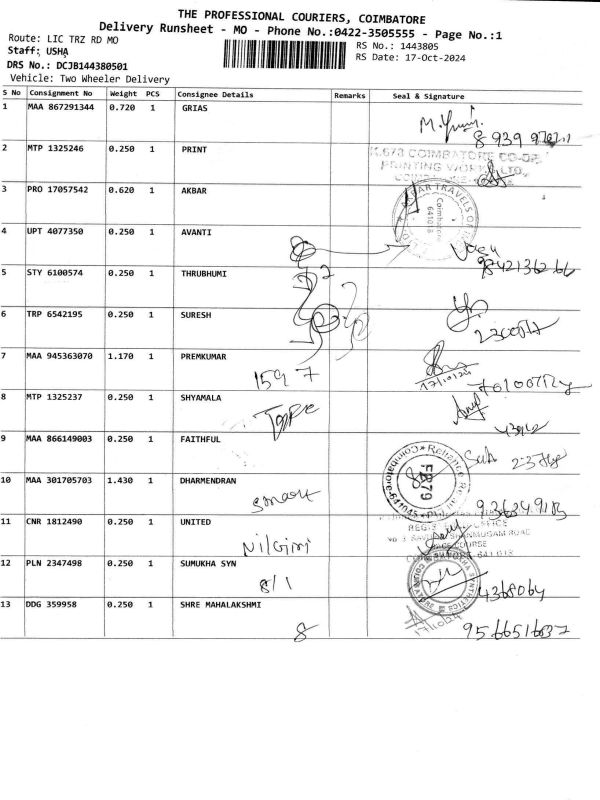 THE PROFESSIONAL COURIERS, COIMBATORE
Delivery Runsheet - MO - Phone No.:0422-3505555 - Page No.:1
Route: LIC TRZ RD MO
RS No.: 1443805
Staff: USHA
RS Date: 17-Oct-2024
DRS No.: DCJB144380501
Vehicle: Two Wheeler Delivery
S No Consignment No Weight PCS Consignee Details Remarks Seal & Signature
1 MAA 867291344 0.720 1 GRIAS
2 MTP 1325246 0.250 1 PRINT
K.673 COIMBATORE CO-OP
PRINTING WORKS LTD.,
3 PRO 17057542 0.620 1 AKBAR
Coimbatore
4 UPT 4077350 0.250 1 AVANTI
9842136266
5 STY 6100574 0.250 1 THRUBHUMI
6 TRP 6542195 0.250 1 SURESH
7 MAA 945363070 1.170 1 PREMKUMAR
1597
17/10/24
8 MTP 1325237 0.250 1 SHYAMALA
Tape
9 MAA 866149003 0.250 1 FAITHFUL
FB79
10 MAA 301705703 1.430 1 DHARMENDRAN
smart
11 CNR 1812490 0.250 1 UNITED
Nilgiri
COIMBATORE 641 018
12 PLN 2347498 0.250 1 SUMUKHA SYN
8/1
4368064
13 DDG 359958 0.250 1 SHRE MAHALAKSHMI
8
9566516637